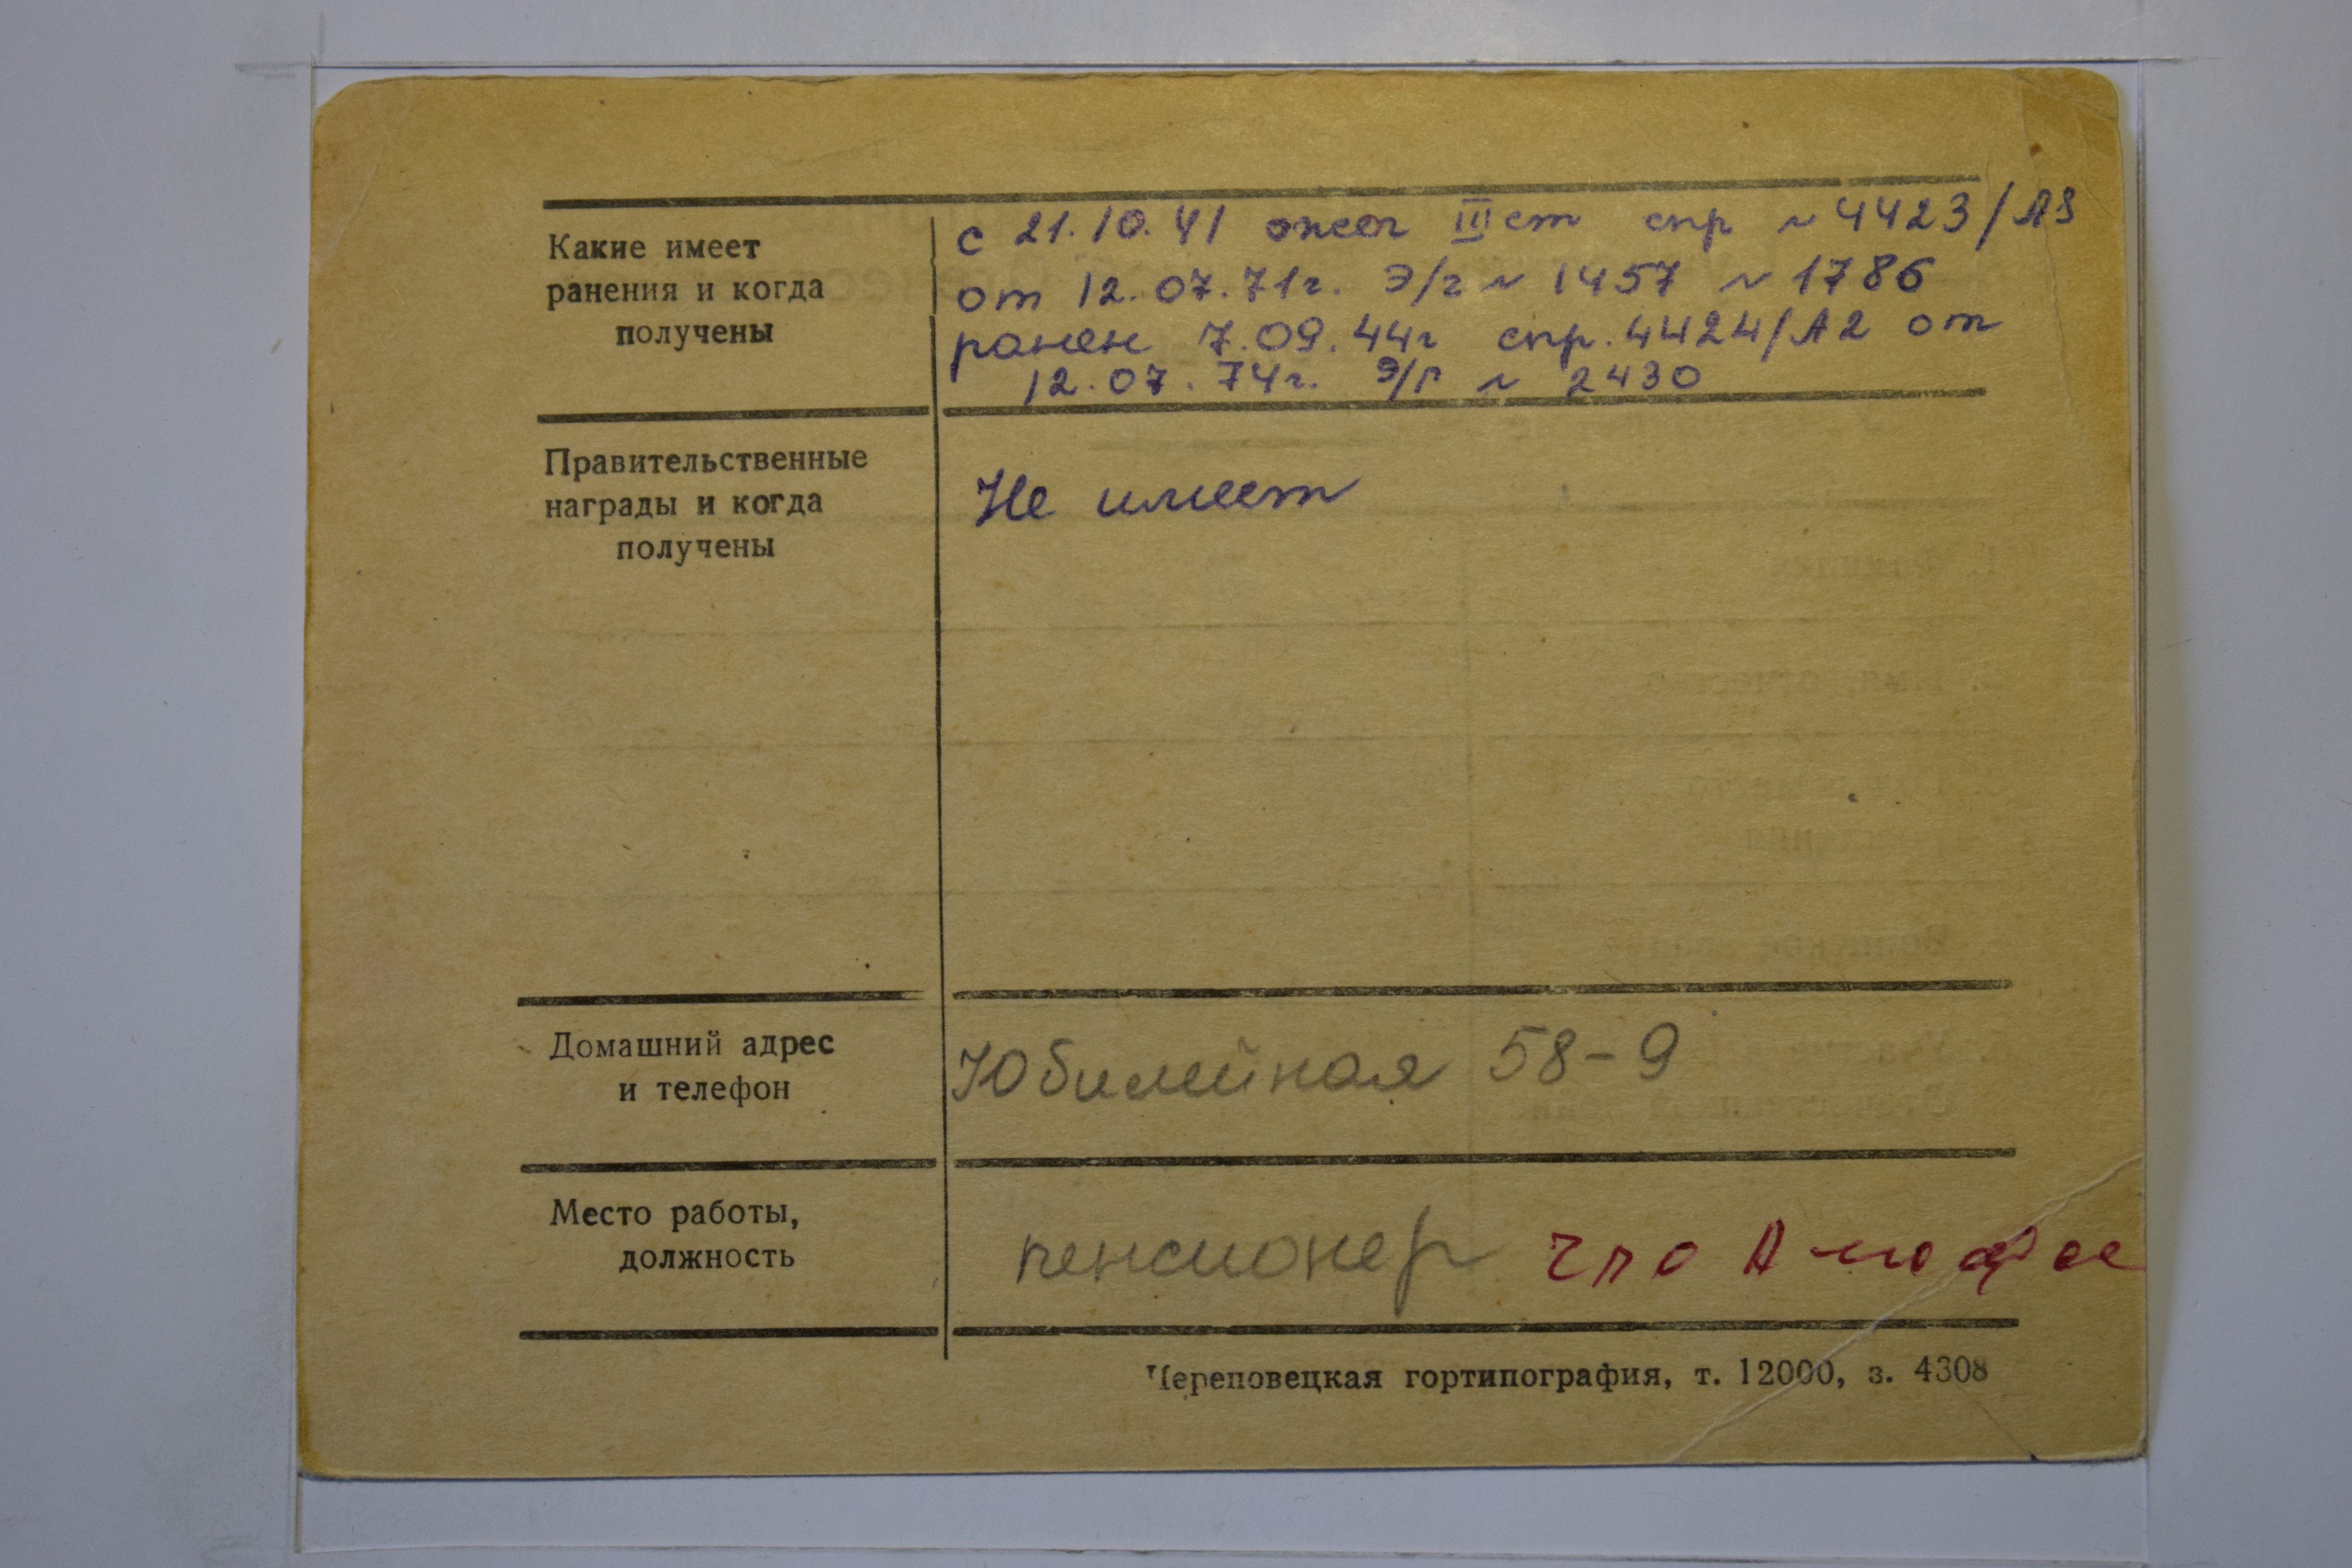 Какие имеет
ранения и когда
получены
с 21.10.41 ожог III ст спр № 4423/А3
от 12.07.71г. Э/г № 1457 № 1786
ранен 7.09.44г спр. 4424/А2 от
12.07.74г. Э/г № 2430
Правительственные
награды и когда
получены
Не имеет
Домашний адрес
и телефон
Юбилейная 58-9
Место работы,
должность
пенсионер ЧПО Аммофос
Череповецкая гортипография, т. 12000, з. 4308